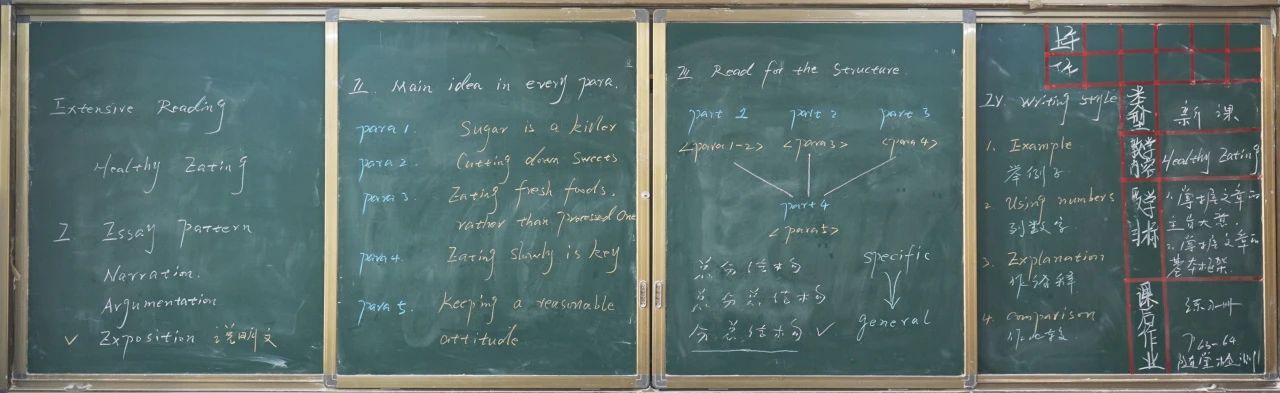 Extensive Reading
Healthy Eating
I Essay pattern
Narration.
Argumentation
✓ Exposition 说明文
II. Main idea in every para.
para 1. Sugar is a killer
para 2. Cutting down sweets
para 3. Eating fresh foods.
rather than processed One
para 4. Eating slowly is key
para 5. Keeping a reasonable
attitude
III Read for the structure.
part 1 part 2 part 3
<para 1-2> <para 3> <para 4>
part 4
<para 5>
总分结构
总分总结构
分总结构 ✓
specific
general
IV. Writing style
1. Example
举例子
2 Using numbers
列数字
3. Explanation
作诠释
4. Comparison
作比较
类型 新课
教学内容 Healthy Eating
教学目标 1.掌握文章的
主旨大意
2.掌握文章的
基本框架.
课后作业 练习册
P63-64
随堂检测